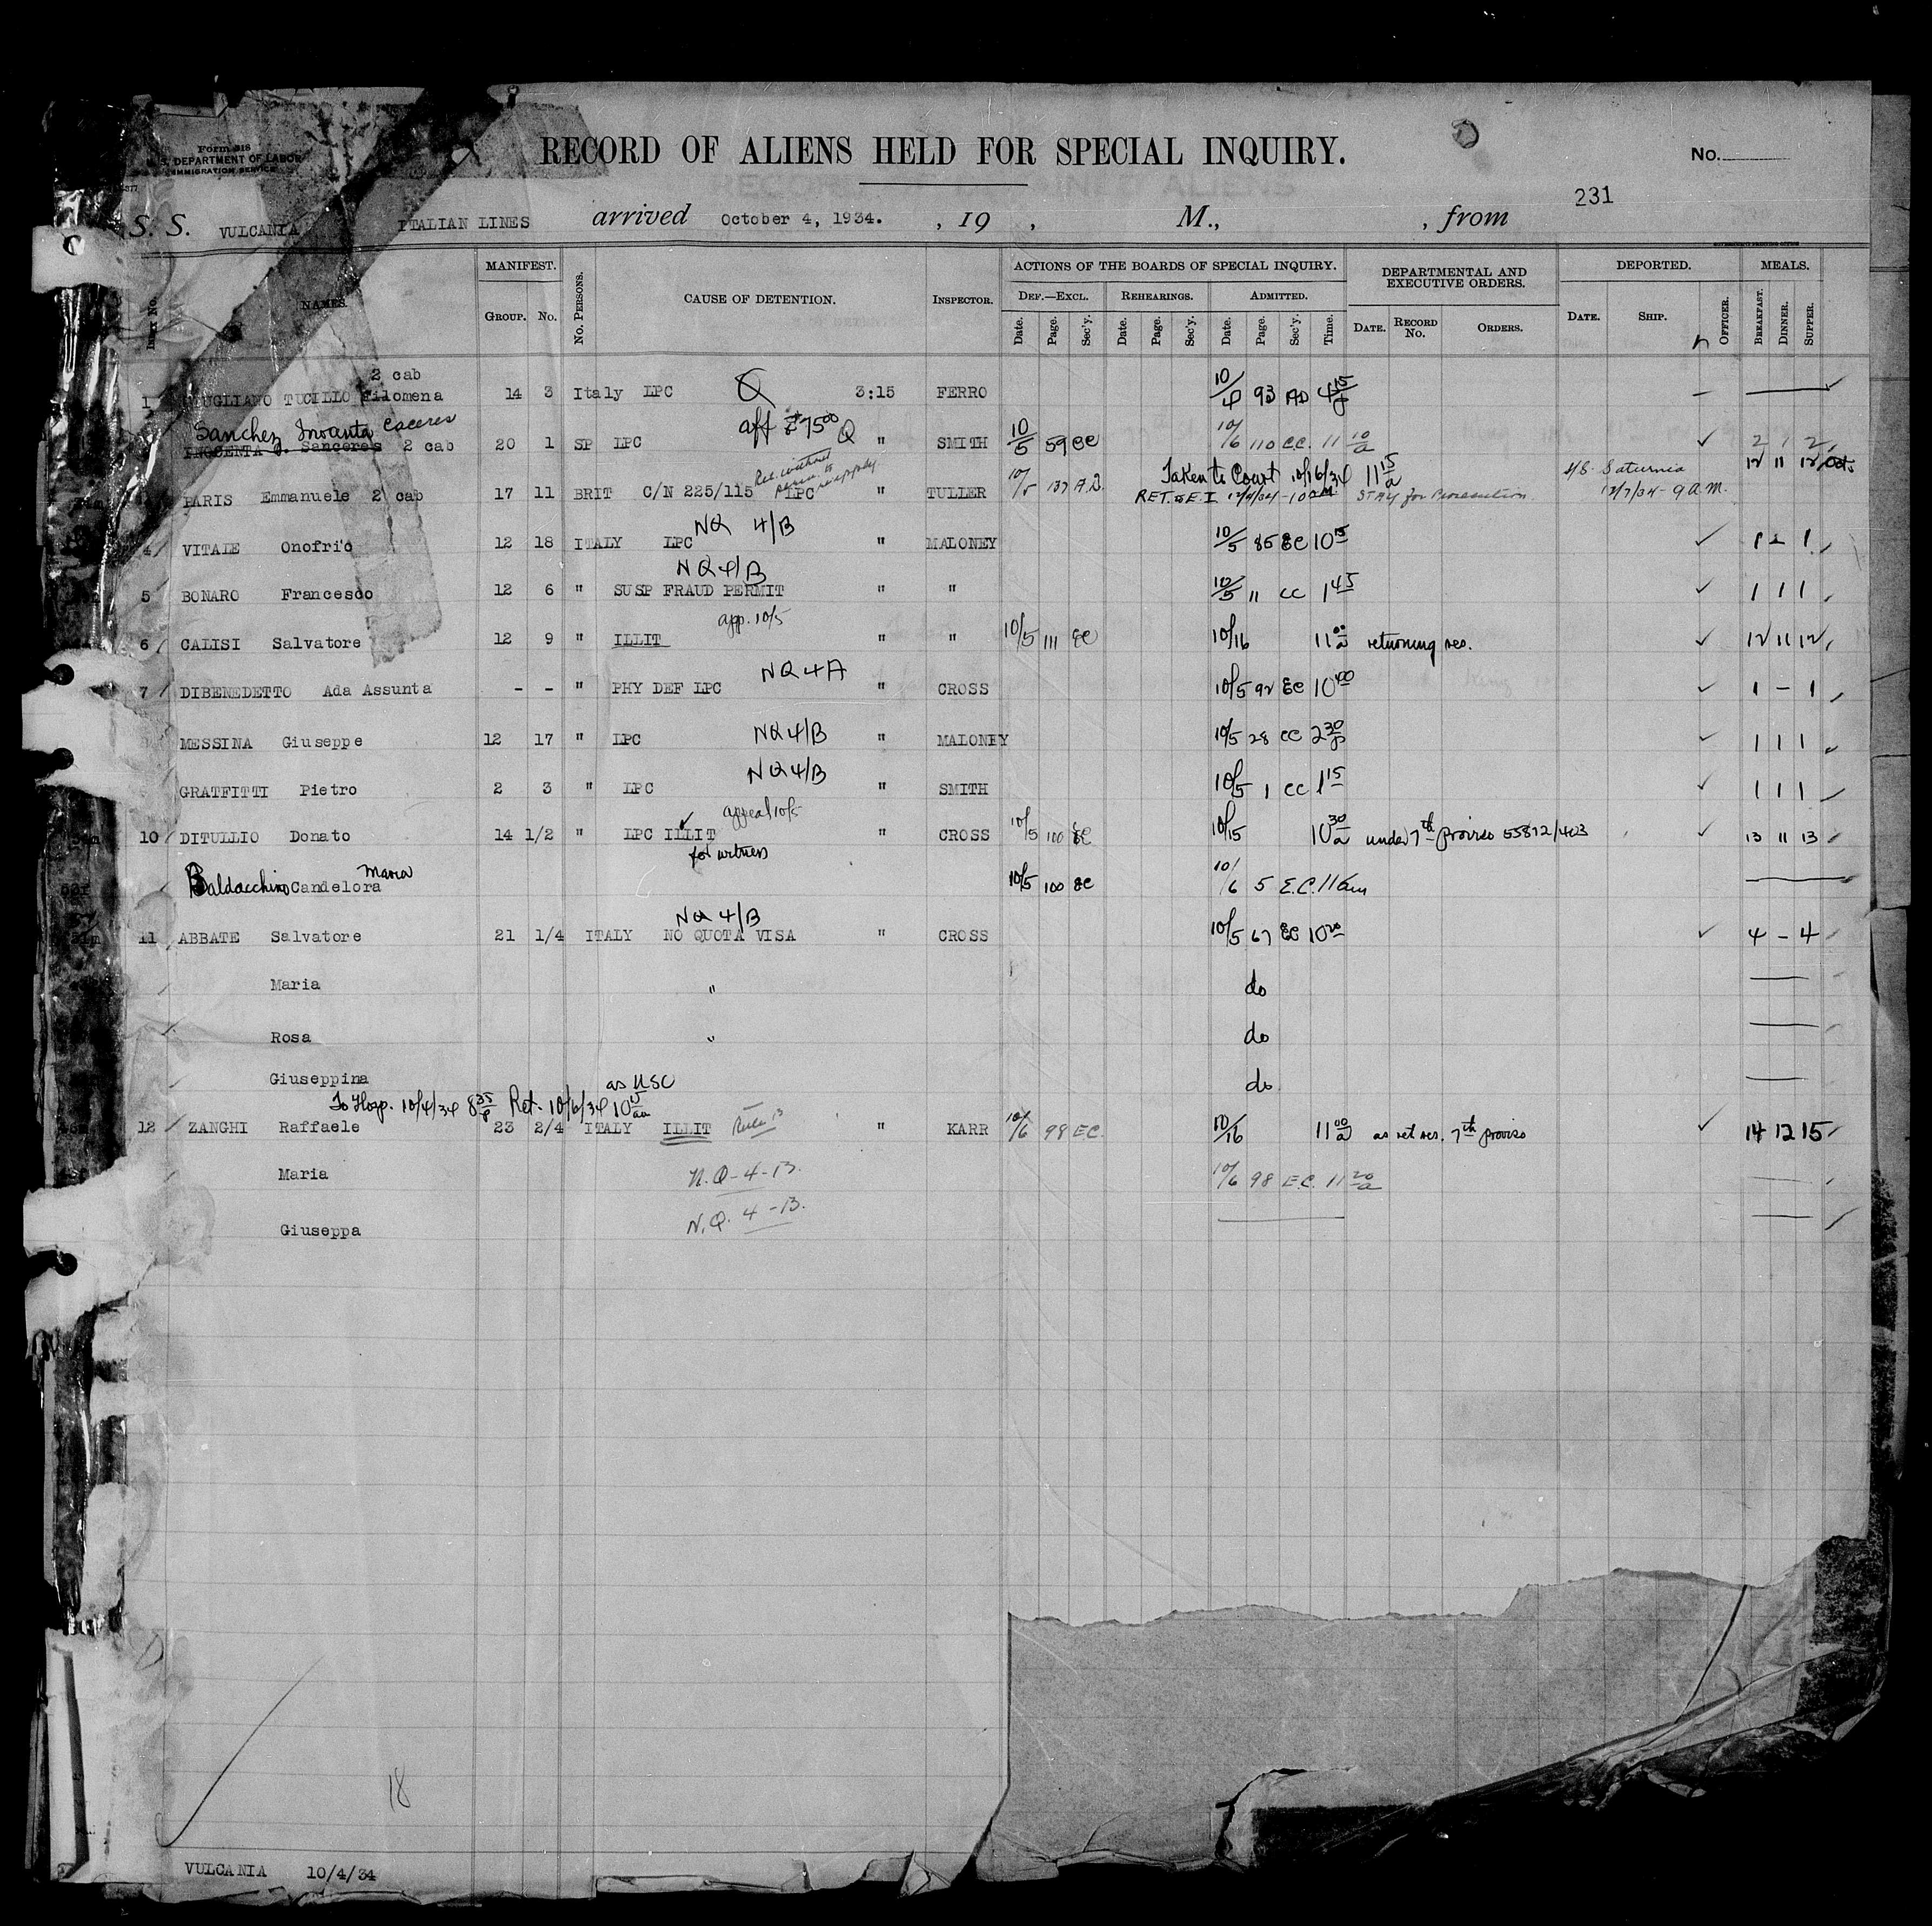 Form 818
U. S. DEPARTMENT OF LABOR
IMMIGRATION SERVICE
RECORD OF ALIENS HELD FOR SPECIAL INQUIRY.
No.
231
S. S. VULCANIA ITALIAN LINES arrived October 4, 1934. , 19 , M., , from
Index No. NAMES. MANIFEST. Group. No. No. Persons. CAUSE OF DETENTION. Inspector. ACTIONS OF THE BOARDS OF SPECIAL INQUIRY. DEPARTMENTAL AND EXECUTIVE ORDERS. DEPORTED. MEALS.
Def.—Excl. Rehearings. Admitted.
Date. Page. Sec'y. Date. Page. Sec'y. Date. Page. Sec'y. Time. Date. Record No. Orders. Date. Ship. Officer. Breakfast. Dinner. Supper.
2 cab
1 GIUGLIANO TUCILLO Filomena 14 3 Italy LPC Q 3:15 FERRO 10/4 93 AD 4 15/P
Sanchez Caceres aff $75 00 Q
Sanceres 2 cab 20 1 SP LPC " SMITH 10/5 59 EC 10/6 110 C.C. 11 10/a 2 1 2
Taken to Court 10/16/34 11 15/a S/S Saturnia 12 11 12
PARIS Emmanuele 2 cab 17 11 BRIT C/N 225/115 LPC " TULLER 10/5 137 A.D. RET. to E.I. 10 am STAY for Prosecution 12/7/34 - 9 A.M.
NQ 4/B
4 VITALE Onofrio 12 18 ITALY LPC " MALONEY 10/5 85 EC 10 15 1 2 1
NQ 4/B
5 BONARO Francesco 12 6 " SUSP FRAUD PERMIT " " 10/5 11 CC 1 45 1 1 1
app. 10/5
6 CALISI Salvatore 12 9 " ILLIT " " 10/5 111 EC 10/16 11 00/a returning res. 12 11 12
NQ 4A
7 DIBENEDETTO Ada Assunta - - " PHY DEF LPC " CROSS 10/5 92 EC 10 00 1 - 1
MESSINA Giuseppe 12 17 " LPC NQ 4/B " MALONEY 10/5 28 CC 2 30/P 1 1 1
NQ 4/B
GRATFITTI Pietro 2 3 " LPC " SMITH 10/5 1 CC 1 15 1 1 1
appeal 10/5
10 DITULLIO Donato 14 1/2 " LPC ILLIT " CROSS 10/5 100 EC 10/15 10 30/a under 7th proviso 55872/403 13 11 13
for witness
Maria
Baldacchino Candelora 10/5 100 EC 10/6 5 E.C. 11 am
NQ 4/B
11 ABBATE Salvatore 21 1/4 ITALY NO QUOTA VISA " CROSS 10/5 67 EC 10 20 4 - 4
Maria " do
Rosa " do
Giuseppina as USC do
To Hosp. 10/4/34 8 35/P Ret. 10/6/34 10 15/am
12 ZANGHI Raffaele 23 2/4 ITALY ILLIT " KARR 10/6 98 E.C. 10/16 11 00/a as ret res. 7th proviso 14 12 15
Maria N.Q-4-B. 10/6 98 E.C. 11 20/a
Giuseppa N.Q. 4-B.
18
VULCANIA 10/4/34